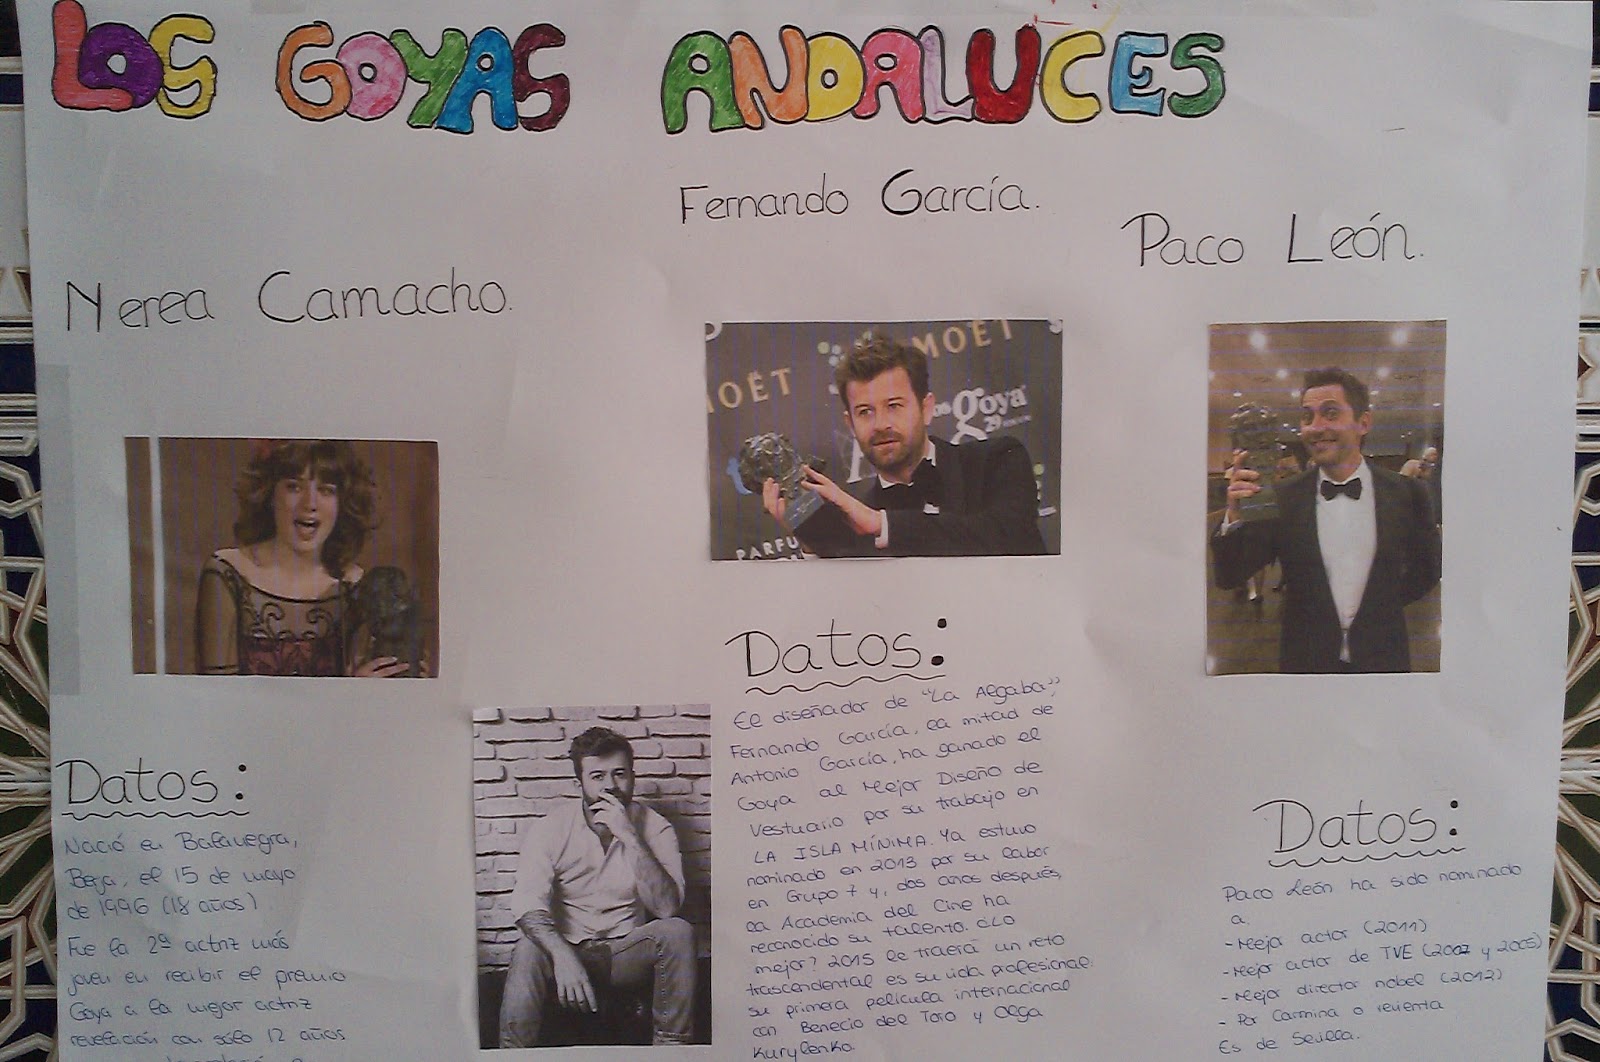 LOS GOYAS ANDALUCES
Nerea Camacho.
Datos:
Nació en Balanegra,
Berja, el 15 de mayo
de 1996 (18 años)
Fue la 2ª actriz más
joven en recibir el premio
Goya a la mejor actriz
revelación con sólo 12 años
Fernando García.
MOËT
MOËT
los goya
29
PARFU
Datos:
El diseñador de "La Algaba",
Fernando García, la mitad de
Antonio García, ha ganado el
Goya al Mejor Diseño de
Vestuario por su trabajo en
LA ISLA MÍNIMA. Ya estuvo
nominado en 2013 por su labor
en Grupo 7 y, dos años después,
la Academia del Cine ha
reconocido su talento. ¿Lo
mejor? 2015 le traerá un reto
trascendental es su vida profesional:
su primera película internacional
con Benecio del Toro y Olga
Kurylenko.
Paco León.
Datos:
Paco León ha sido nominado
a.
- Mejor actor (2011)
- Mejor actor de TVE (2007 y 2005)
- Mejor director nobel (2012)
- Por Carmina o revienta
Es de Sevilla.